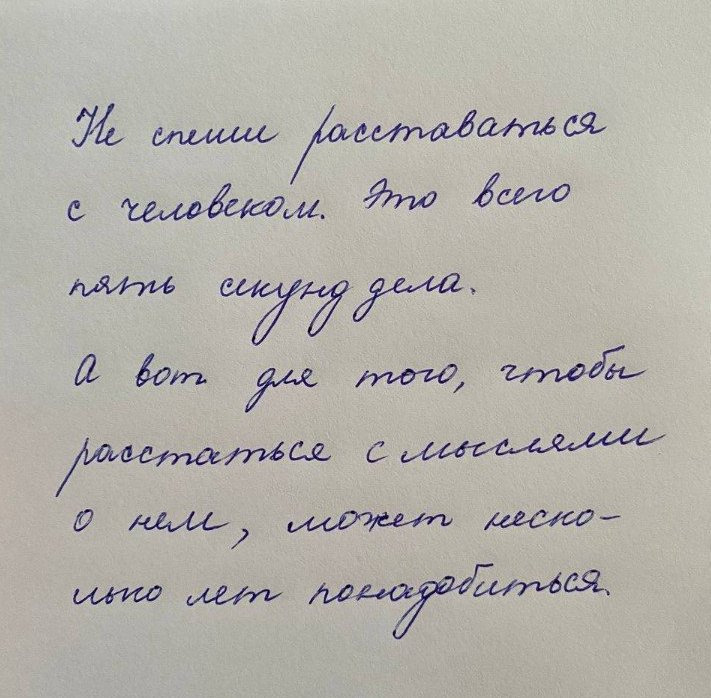 Не спеши расставаться
с человеком. Это всего
пять секунд дела.
А вот для того, чтобы
расстаться с мыслями
о нем, может неско-
лько лет понадобиться.